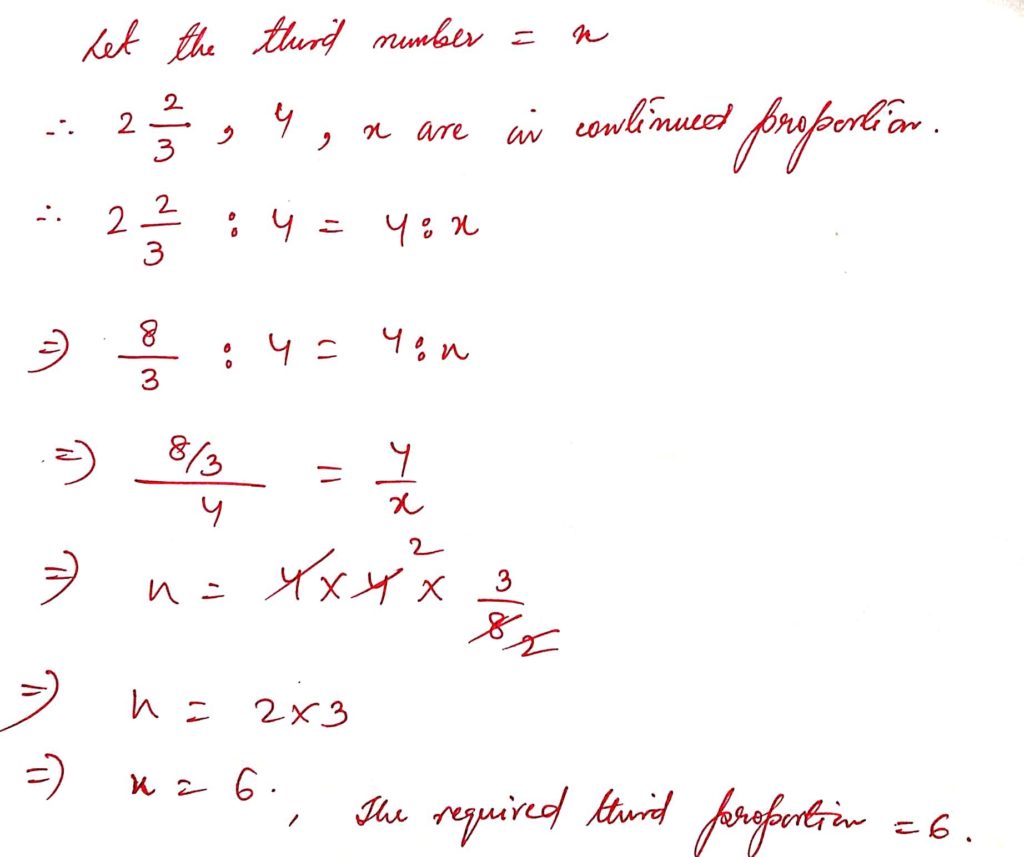 Let the third number = x
∴ 2 2/3 , 4 , x are in continued proportion.
∴ 2 2/3 : 4 = 4 : x
⇒ 8/3 : 4 = 4 : x
⇒ (8/3)/4 = 4/x
⇒ x = 4 × 4 2 × 3/8 2
⇒ x = 2 × 3
⇒ x = 6. , The required third proportion = 6.